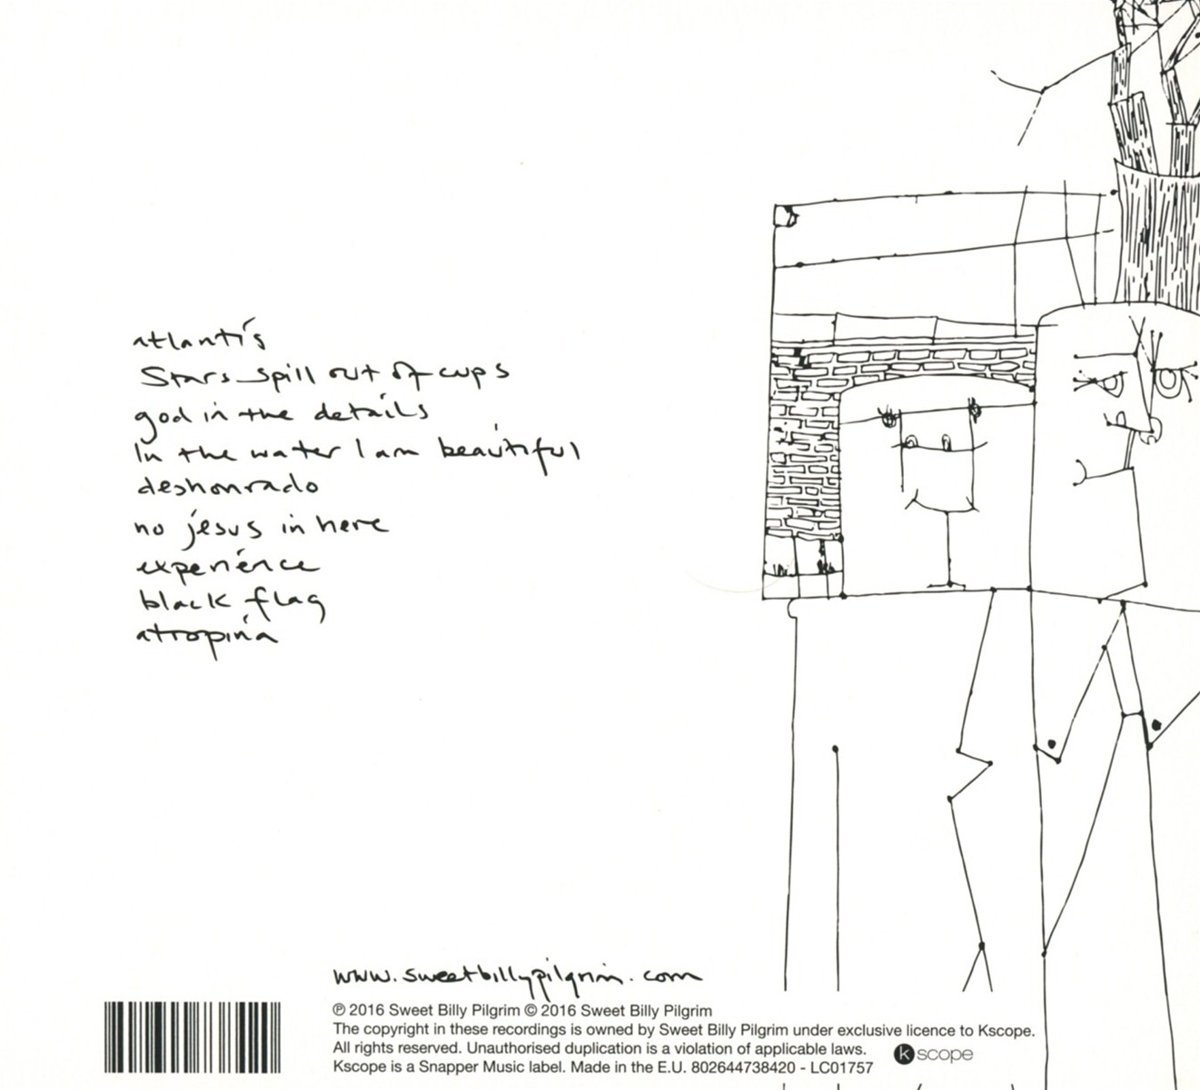 atlantis
Stars spill out of cups
god in the details
In the water I am beautiful
deshonrado
no jesus in here
experience
black flag
atropina
www.sweetbillypilgrim.com
℗ 2016 Sweet Billy Pilgrim © 2016 Sweet Billy Pilgrim
The copyright in these recordings is owned by Sweet Billy Pilgrim under exclusive licence to Kscope.
All rights reserved. Unauthorised duplication is a violation of applicable laws.
kscope
Kscope is a Snapper Music label. Made in the E.U. 802644738420 - LC01757